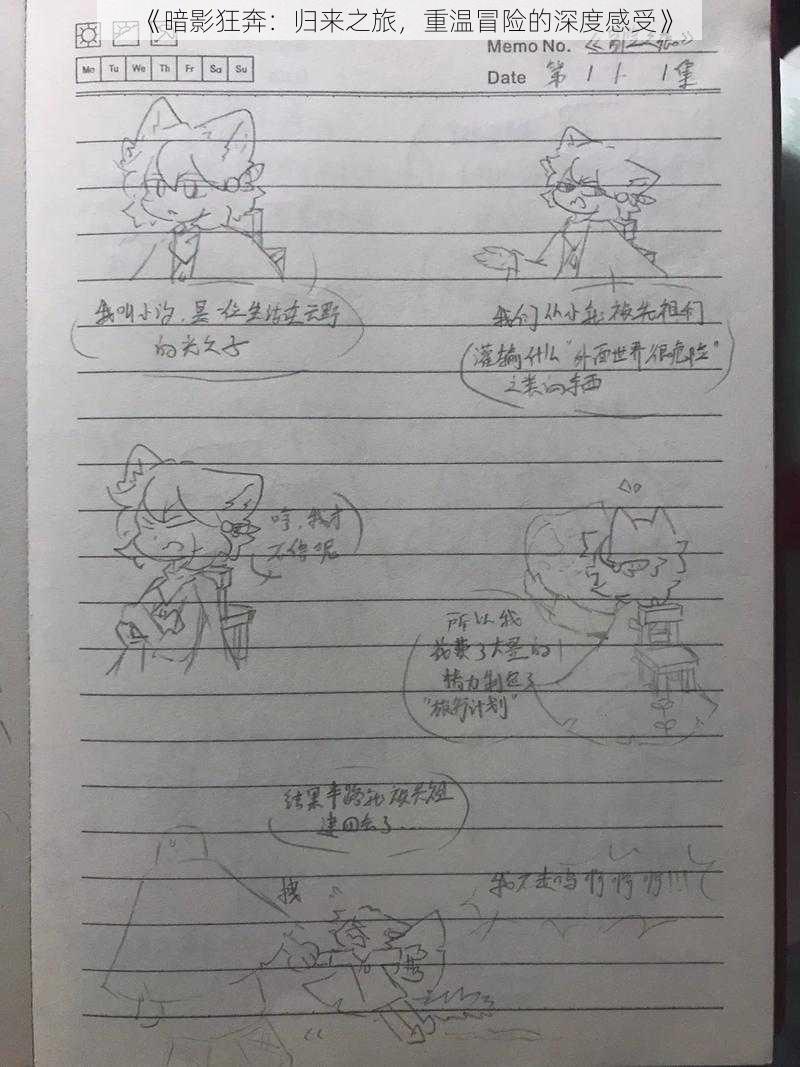 《暗影狂奔：归来之旅，重温冒险的深度感受》
Memo No. 《冒险之旅》
Mo Tu We Th Fr Sa Su
Date 第 1 / 1集
我叫小汐，是一位生活在云野
的光之子
我们从小就被先祖们
灌输什么“外面世界很危险”
之类的东西
哼，我才
不信呢
所以我
花费了大量的
精力制定了
“旅行计划”
结果半路就被先祖
逮回去了...
拽
我不走呜啊啊啊!!!